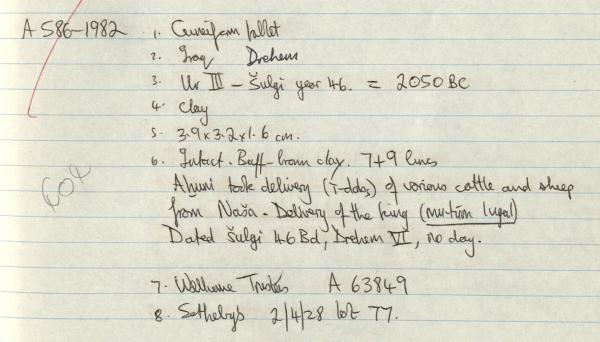 A 586-1982 1. Cuneiform tablet
2. Iraq Drehem
3. Ur III - Šulgi year 46. = 2050 BC
4. Clay
5. 3.9 x 3.2 x 1.6 cm.
6. Intact. Buff-brown clay. 7+9 lines
Ahuni took delivery (ì-dab₅) of various cattle and sheep
from Naša. Delivery of the king (mu-túm lugal)
Dated Šulgi 46Bd, Drehem VI, no day.
604
7. Wellcome Trustees A 63849
8. Sothebys 2/4/28 lot 77.